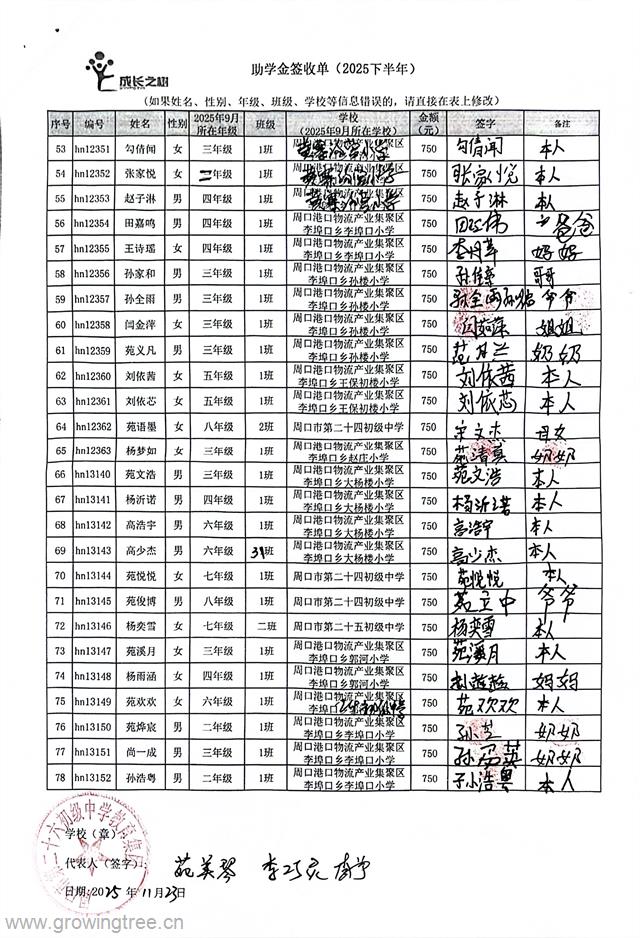 成长之树
助学金签收单（2025下半年）
(如果姓名、性别、年级、班级、学校等信息错误的，请直接在表上修改)
序号 编号 姓名 性别 2025年9月所在年级 班级 学校(2025年9月所在学校) 金额(元) 签字 备注
53 hn12351 勾倩闻 女 三年级 1班 750 勾倩闻 本人
54 hn12352 张家悦 女 二年级 1班 750 张家悦 本人
55 hn12353 赵子淋 男 四年级 1班 750 赵子淋 本人
56 hn12354 田嘉鸣 男 四年级 1班 周口港口物流产业集聚区李埠口乡李埠口小学 750 爸爸
57 hn12355 王诗瑶 女 四年级 1班 周口港口物流产业集聚区李埠口乡李埠口小学 750
58 hn12356 孙家和 男 三年级 1班 周口港口物流产业集聚区李埠口乡孙楼小学 750 哥哥
59 hn12357 孙全雨 男 三年级 1班 周口港口物流产业集聚区李埠口乡孙楼小学 750 爷爷
60 hn12358 闫金萍 女 三年级 1班 周口港口物流产业集聚区李埠口乡孙楼小学 750 姐姐
61 hn12359 苑义凡 男 三年级 1班 周口港口物流产业集聚区李埠口乡孙楼小学 750 奶奶
62 hn12360 刘依茜 女 五年级 1班 周口港口物流产业集聚区李埠口乡王保初楼小学 750 刘依茜 本人
63 hn12361 刘依芯 女 五年级 1班 周口港口物流产业集聚区李埠口乡王保初楼小学 750 刘依芯 本人
64 hn12362 苑语墨 女 八年级 2班 周口市第二十四初级中学 750 宋文杰 母女
65 hn12363 杨梦如 女 三年级 1班 周口港口物流产业集聚区李埠口乡赵庄小学 750 奶奶
66 hn13140 苑文浩 男 三年级 1班 周口港口物流产业集聚区李埠口乡大杨楼小学 750 苑文浩 本人
67 hn13141 杨沂诺 男 四年级 1班 周口港口物流产业集聚区李埠口乡大杨楼小学 750 杨沂诺 本人
68 hn13142 高浩宇 男 六年级 1班 周口港口物流产业集聚区李埠口乡大杨楼小学 750 高浩宇 本人
69 hn13143 高少杰 男 六年级 周口港口物流产业集聚区李埠口乡大杨楼小学 750 高少杰 本人
70 hn13144 苑悦悦 女 七年级 1班 周口市第二十四初级中学 750 苑悦悦 本人
71 hn13145 苑俊博 男 八年级 1班 周口市第二十四初级中学 750 苑卫中 爷爷
72 hn13146 杨奕雪 女 七年级 二班 周口市第二十五初级中学 750 杨奕雪 本人
73 hn13147 苑溪月 女 三年级 1班 周口港口物流产业集聚区李埠口乡郭河小学 750 苑溪月 本人
74 hn13148 杨雨涵 女 四年级 1班 周口港口物流产业集聚区李埠口乡郭河小学 750 妈妈
75 hn13149 苑欢欢 女 六年级 1班 周口港口物流产业集聚区 750 苑欢欢 本人
76 hn13150 苑烨宸 男 二年级 1班 周口港口物流产业集聚区李埠口乡李埠口小学 750 奶奶
77 hn13151 尚一成 男 三年级 1班 周口港口物流产业集聚区李埠口乡李埠口小学 750 奶奶
78 hn13152 孙浩粤 男 二年级 1班 周口港口物流产业集聚区李埠口乡李埠口小学 750 孙浩粤 本人
学校（章）
代表人（签字）： 苑美琴
日期:2025年11月23日
www.growingtree.cn